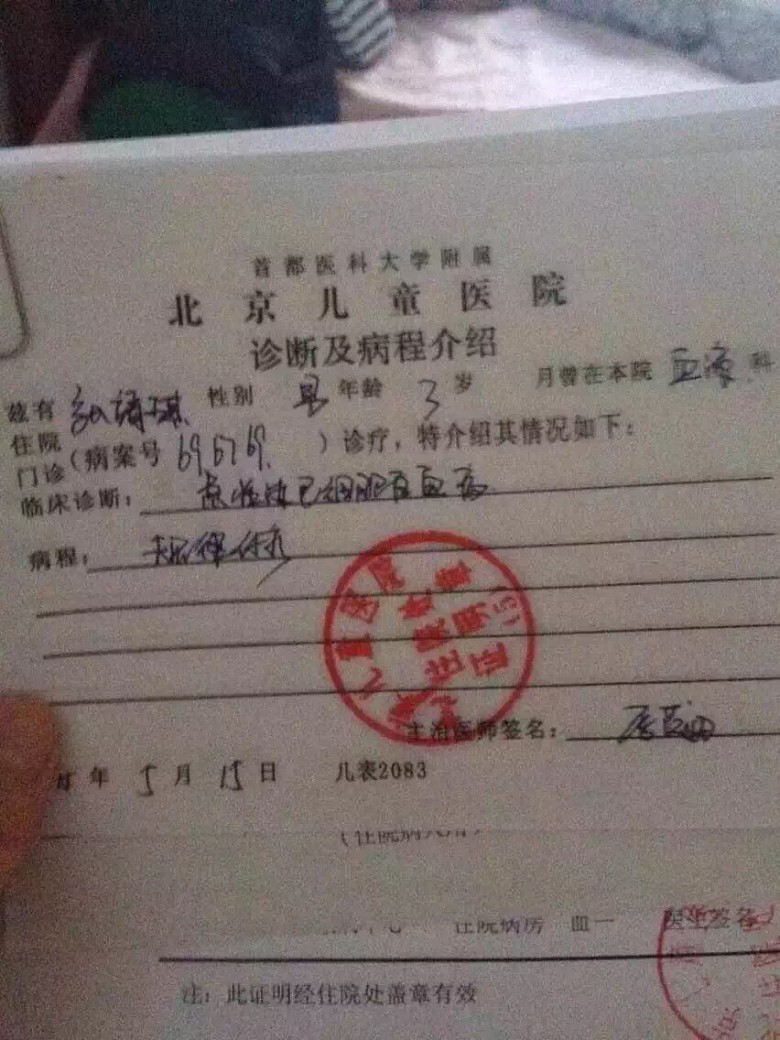 首都医科大学附属
北京儿童医院
诊断及病程介绍
兹有 性别 男 年龄 3 岁 月曾在本院 血液 科
住院
门诊(病案号 696769 )诊疗,特介绍其情况如下:
临床诊断: 急性淋巴细胞白血病
病程:
儿童医院
住院
证明
(5)
主治医师签名:
年 5 月 15 日 儿表2083
(住院病人用)
住院病房 血一 医生签名
注:此证明经住院处盖章有效